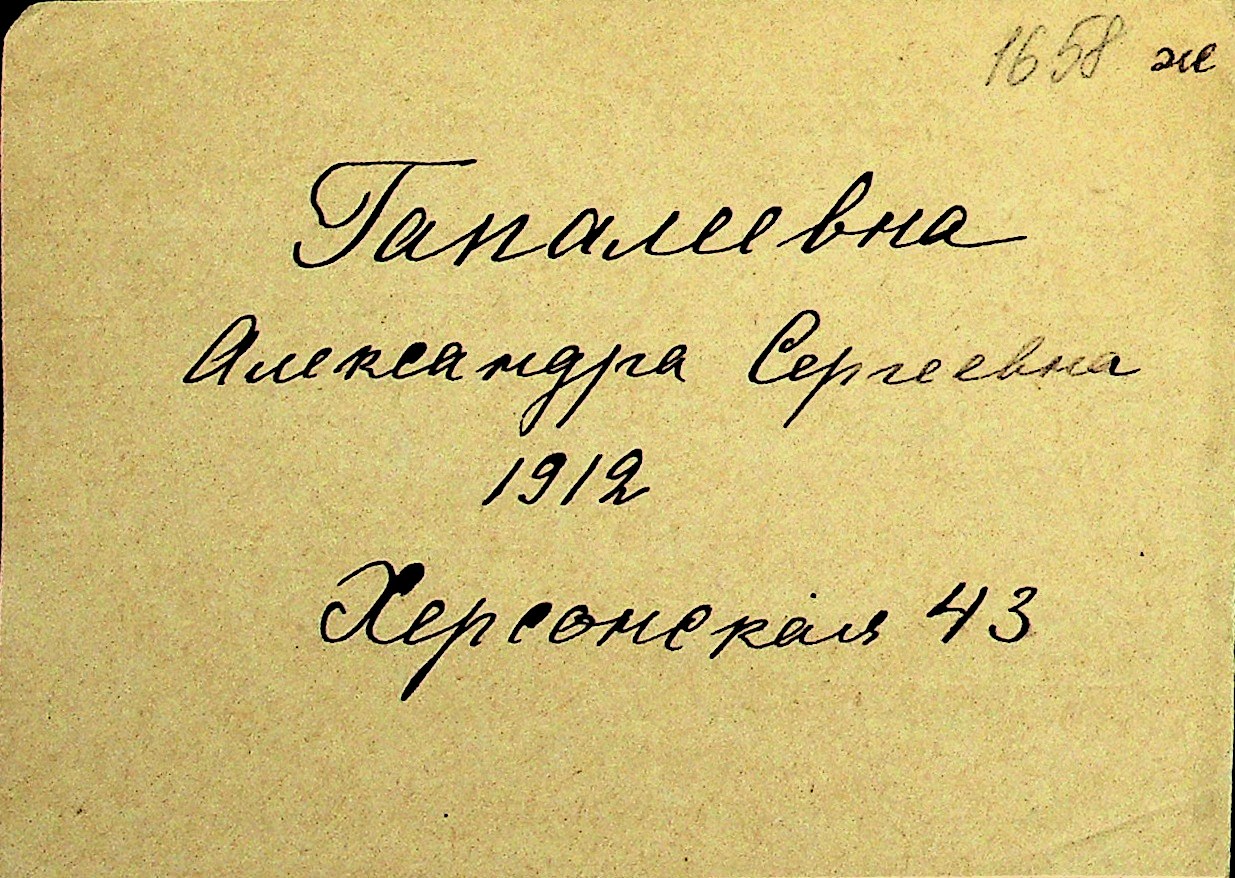 1658 ж
Гапалеевна
Александра Сергеевна
1912
Херсонская 43